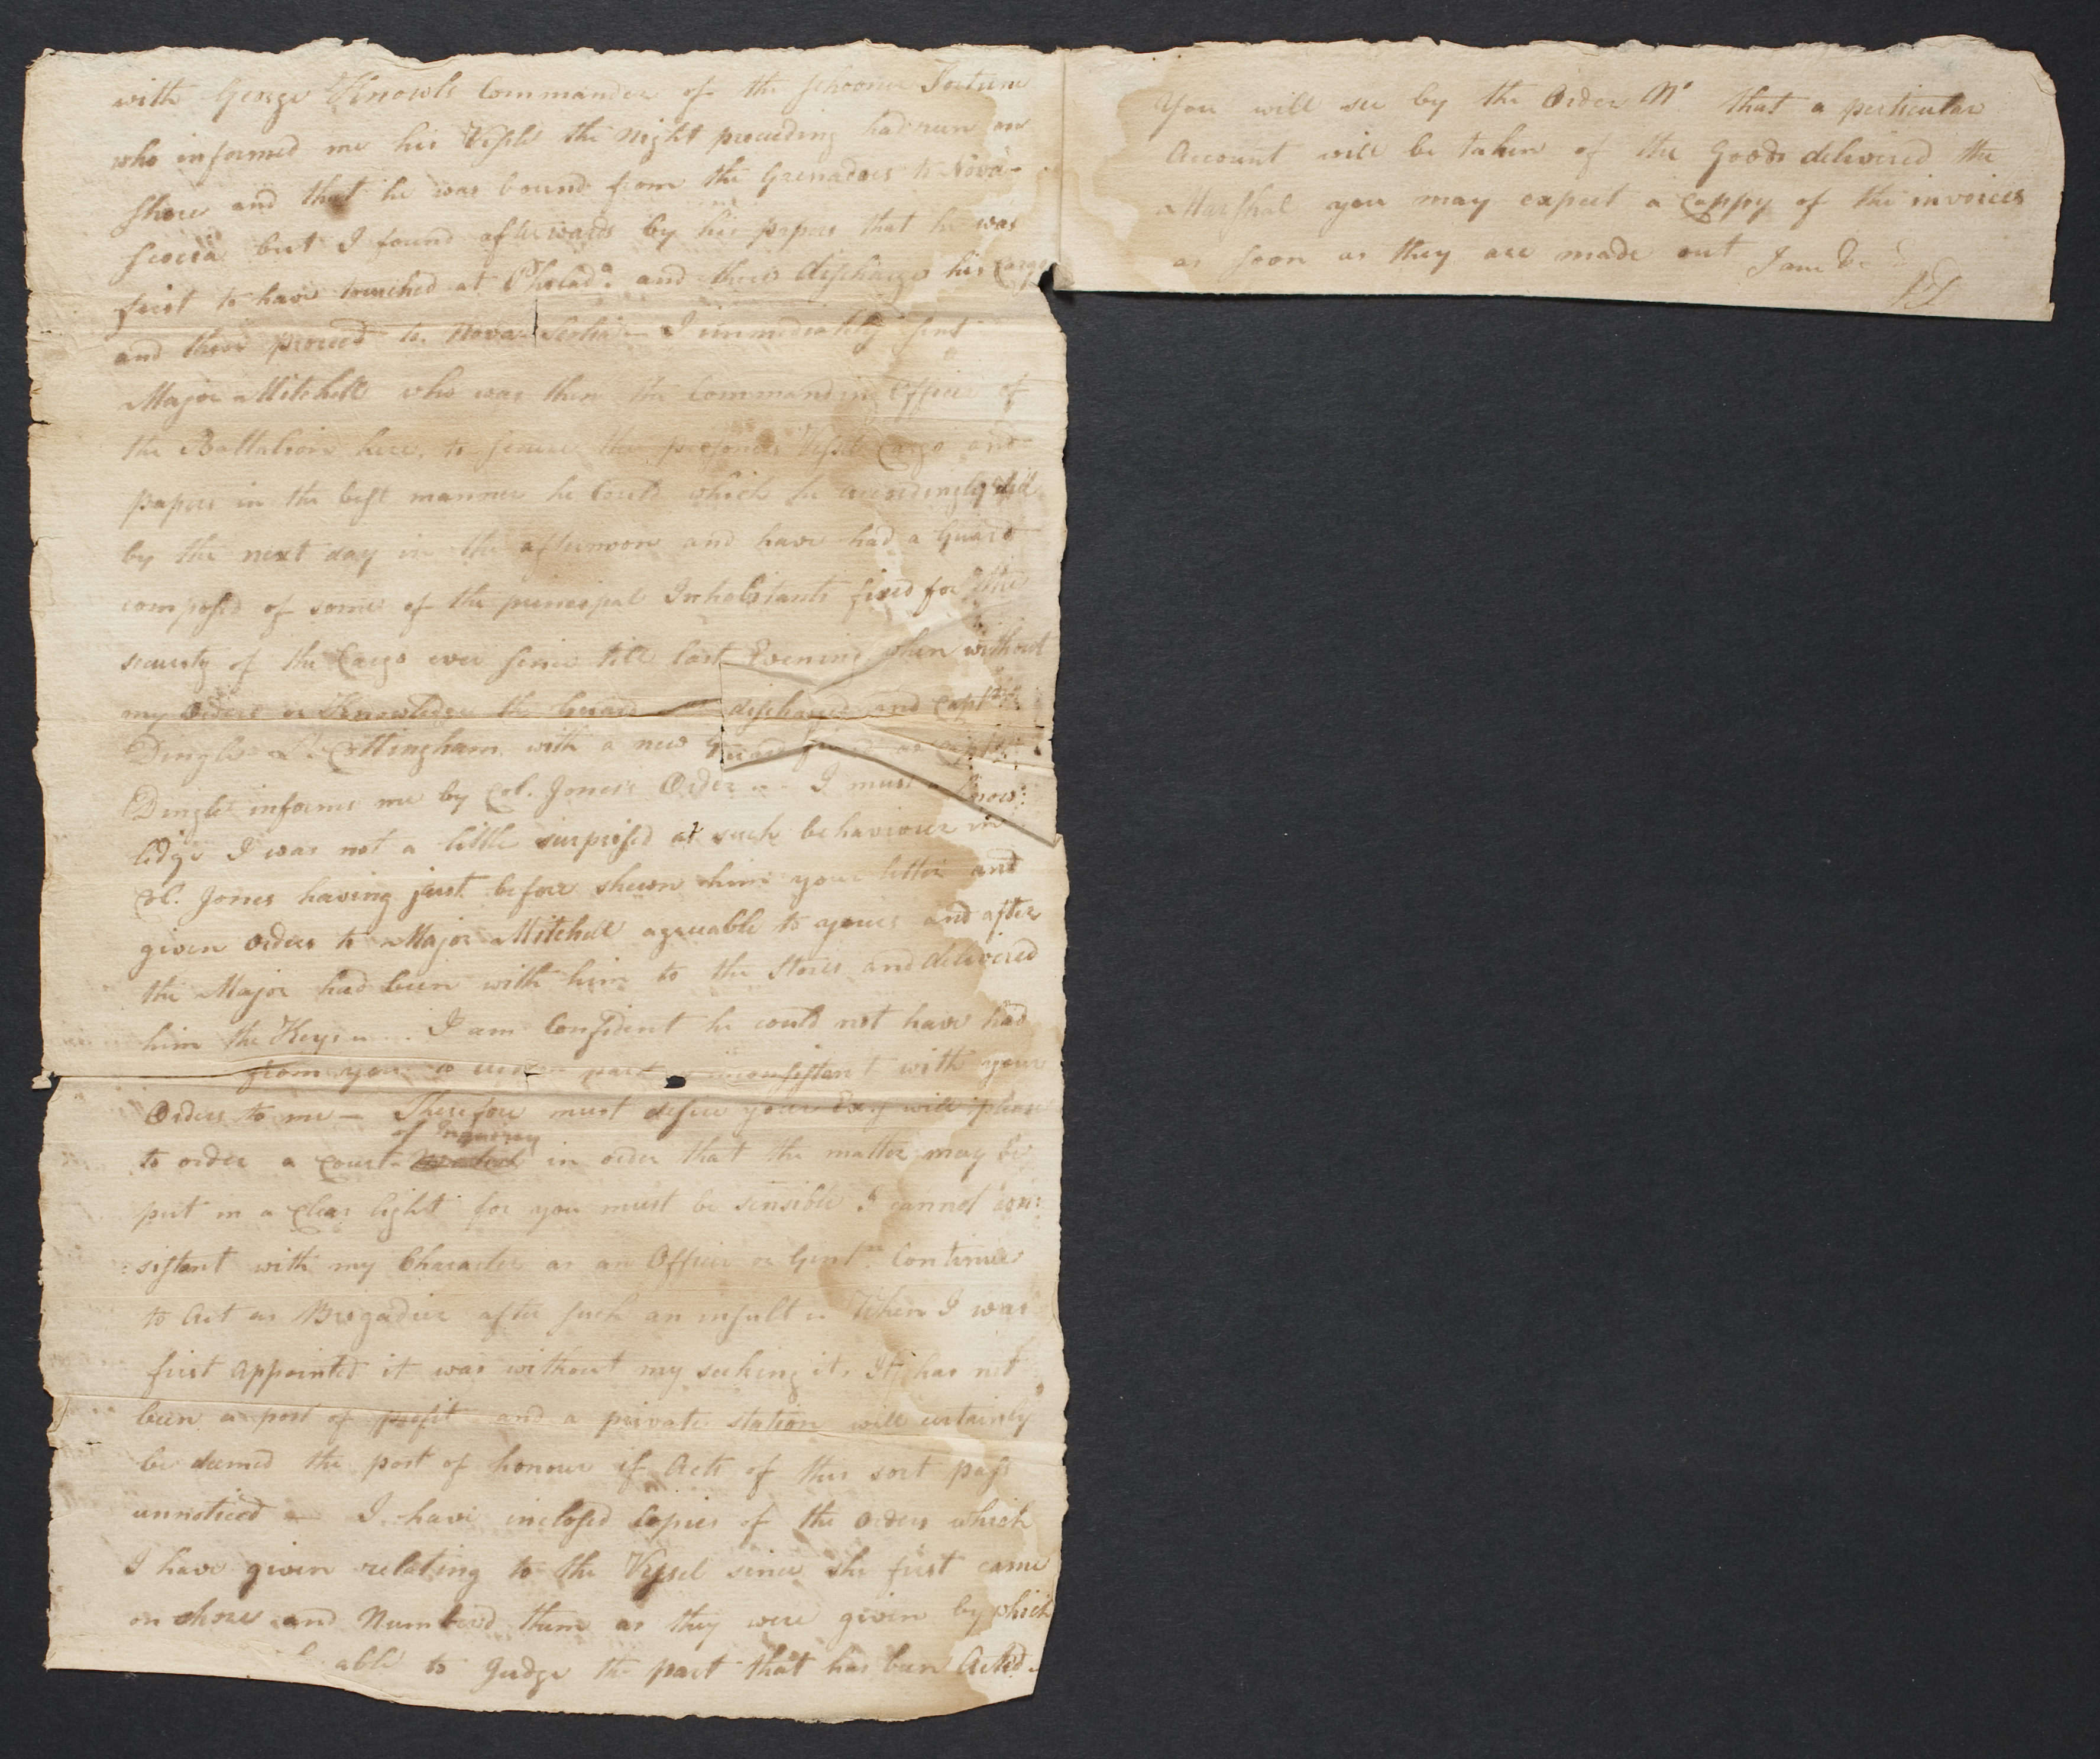 with George Knowls Commander of the schooner Fortune
who informed me his Vessle the night preceeding had run on
shore and that he was bound from the Grenadaes to Nova-
scocia but I found afterwards by his papers that he was
first to have touched at Philad.a and there discharge his Cargo
and then proceed to Nova Scotia — I immediately sent
Major Mitchell who was then the Commanding Officer of
the Battalion here, to secure the prisoners Vessel Cargo and
papers in the best manner he Could which he accordingly did
by the next day in the afternoon and have had a Guard
composed of some of the principal Inhabitants fixed for the
security of the Cargo ever since till last Evening when without
my Orders or Knowledge the Guard discharged and Capt.
Dingle Cottingham with a new Guard fixed as Capt.
Dingle informs me by Col. Jones's Order — I must acknow:
ledge I was not a little surprised at such behaviour in
Col. Jones having just before shewn him your letter and
given Orders to Major Mitchell agreeable to yours and after
the Major had been with him to the Stores and delivered
him the Keys — I am Confident he could not have had
from you inconsistant with your
Orders to me — Therefore must desire your Excy will please
of Inquirey
to order a Court in order that the matter may be
put in a Clear light for you must be sensible I cannot con:
:sistant with my Character as an Officer or Gent.n Continue
to Act as Brigadier after such an insult — When I was
first appointed it was without my seeking it, It has not
been a post of profit and a private station will certainly
be deemed the post of honour if Acts of this sort pass
unnoticed — I have inclosed Copies of the orders which
I have given relating to the Vessel since she first came
on shore and Numbered them as they were given by which
able to Judge the part that has been Acted —
You will see by the Order No that a perticular
Account will be taken of the Goods delivered the
Marshal you may expect a Coppy of the invoices
as soon as they are made out I am &c